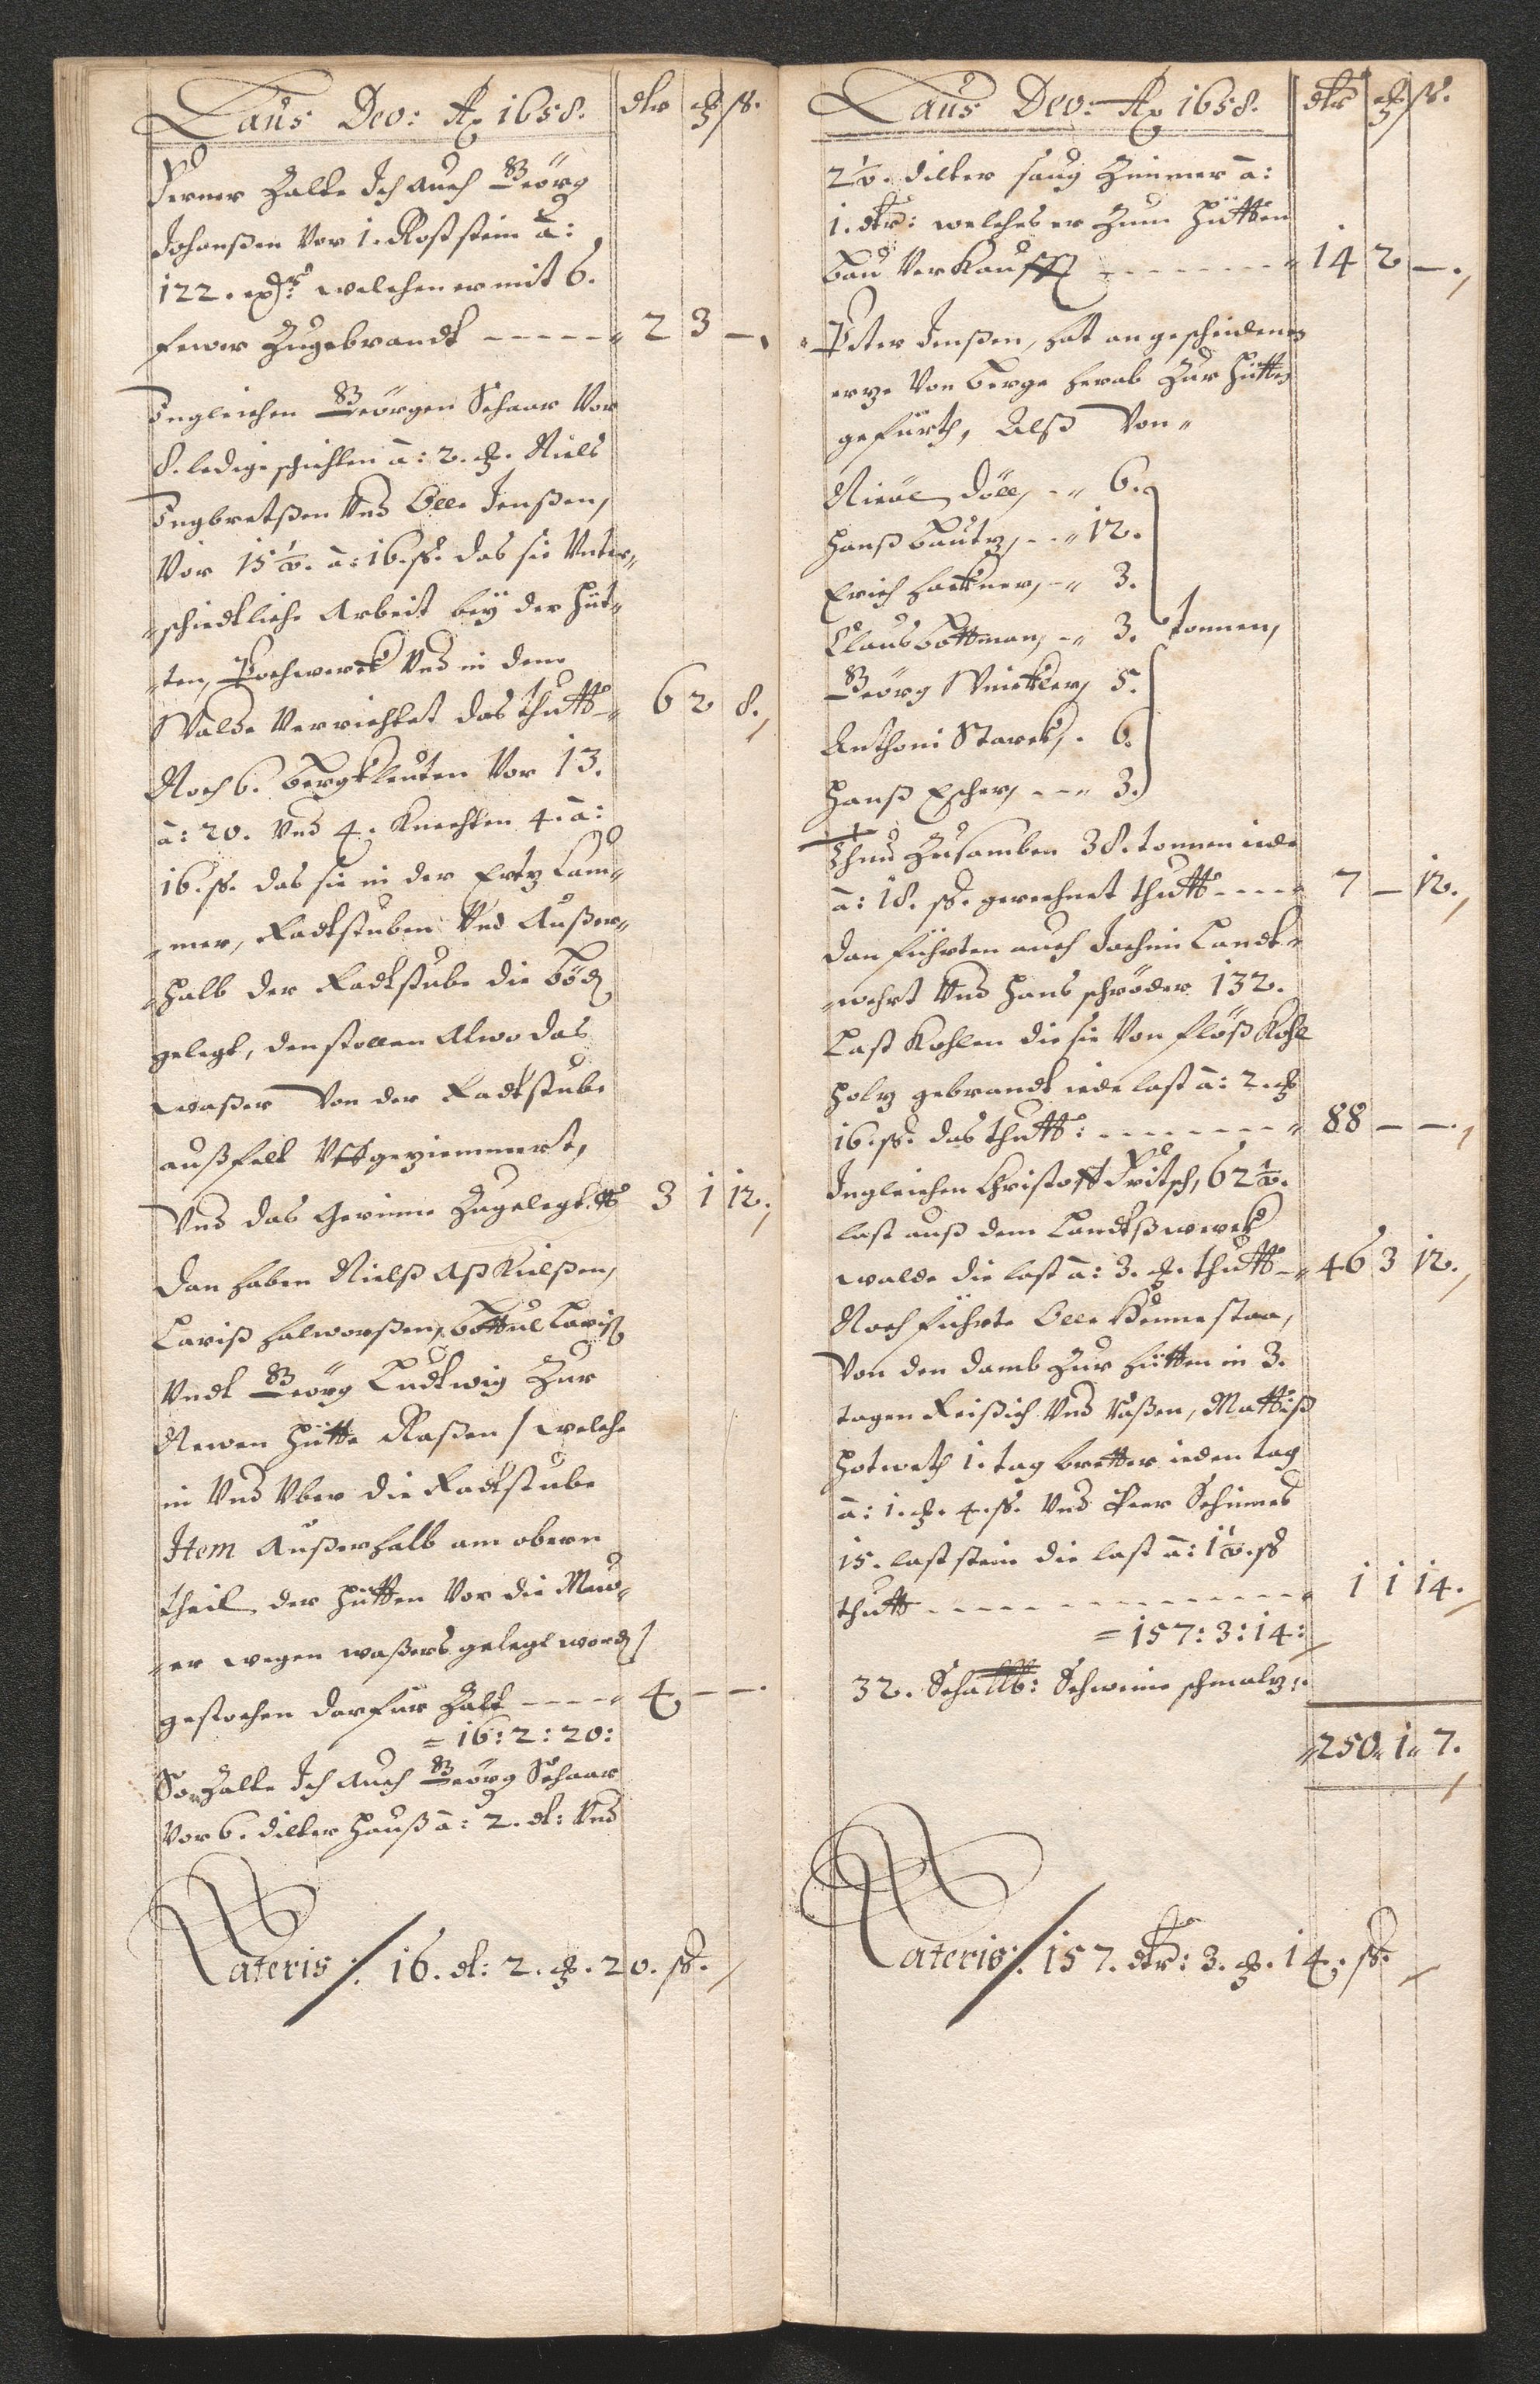 Laus Deo: Ao 1658. dlr ß.
Ferner Zalte Ich auch Geörg
Johanßen Vor 1. Roststein â:
122. welchen er mit 6.
fewer Zugebrandt ----- 2 3 —
Ingleichen Geörgen Schaar Vor
8. ledige schichten â: 2. Niels
Ingbretßen Und Olle Jenßen,
Vor 15 ½. â: 16. ß. das sie Unter„
„schiedtliche Arbeit beÿ der Hüt„
„ten, Pochwerck Und in dem
Walde Verrichtet das thutt 6 2 8.
Noch 6. Bergkleuten Vor 13.
â: 20. Und 4. Knechten 4. â:
16. ß. das sie in der Ertz Cam„
„mer, Radtstuben Und Außer„
„halb der Radtstube die
gelegt, den stollen Alwo das
waßer Von der Radtstube
außfelt Uffgeziemmert,
Und das Gerinne Zugelegt. 3 1 12.
Dan haben Nielß Aßkielßen,
Lariß Halworßen, Bottul Lariß
Undt Geörg Ludtwig Zur
Newen Hütte Raßen / welche
in Und Uber die Radtstube
Item Außerhalb am obern
theil der Hütten Vor die Mau„
„er wegen waßers gelegt word /
gestochen darfur Zalt ---- 4 — —
= 16: 2: 20:
So Zalte Ich Auch Geörg Schaar
Vor 6. dilter Hauß â: 2. dl: Und
Lateris /: 16. dl: 2. 20. ß.
Laus Deo: Ao 1658. dlr ß.
2 ½. dilter Zimmer â:
1. dlr: welches er Zum Hütten
bau Verkaufft ------- 14 2 —
Peter Jenßen, hat an gescheidenen
ertze Von berge herab Zur Hütten
gefürth, Alß Von„
Nicol Döll, - „ 6.
Hanß Bautz, - - „ 12.
Erich Hattner, - „ 3.
Claus Bottman, - „ 3. tonnen,
Geörg Winckler, 5.
Anthoni Starck, . 6.
Hanß Escher, - - „ 3.
Thun Zusamben 38. tonnen iede
â: 18. ß. gerechnet thutt ---- 7 — 12.
Dan führten auch Jochim Landt„
„wehrt Und Hans schröder 132.
Last Kohlen die sie Von flöß Kohl
holtz gebrandt iede last â: 2.
16. ß. das thutt: ------- 88 — —
Ingleichen Christoff Fritsch, 62 ½.
last auß dem Landtßwerck
walde die last â: 3. thutt - 46 3 12.
Noch führte Olle Kennestaa,
Von den damb Zur hütten in 3.
tagen Reißich Und Raßen, Mattiß
Hotweth 1. tag bretter ieden tag
â: 1. 4. ß. Und Peer Schimes
15. last stein die last â: 1 ½. ß
thutt ------------- 1 1 14.
= 157: 3: 14:
32. Schallb: Schweine schmaltz:
„250„ 1„ 7.
Lateris /: 157. dlr: 3. 14. ß.